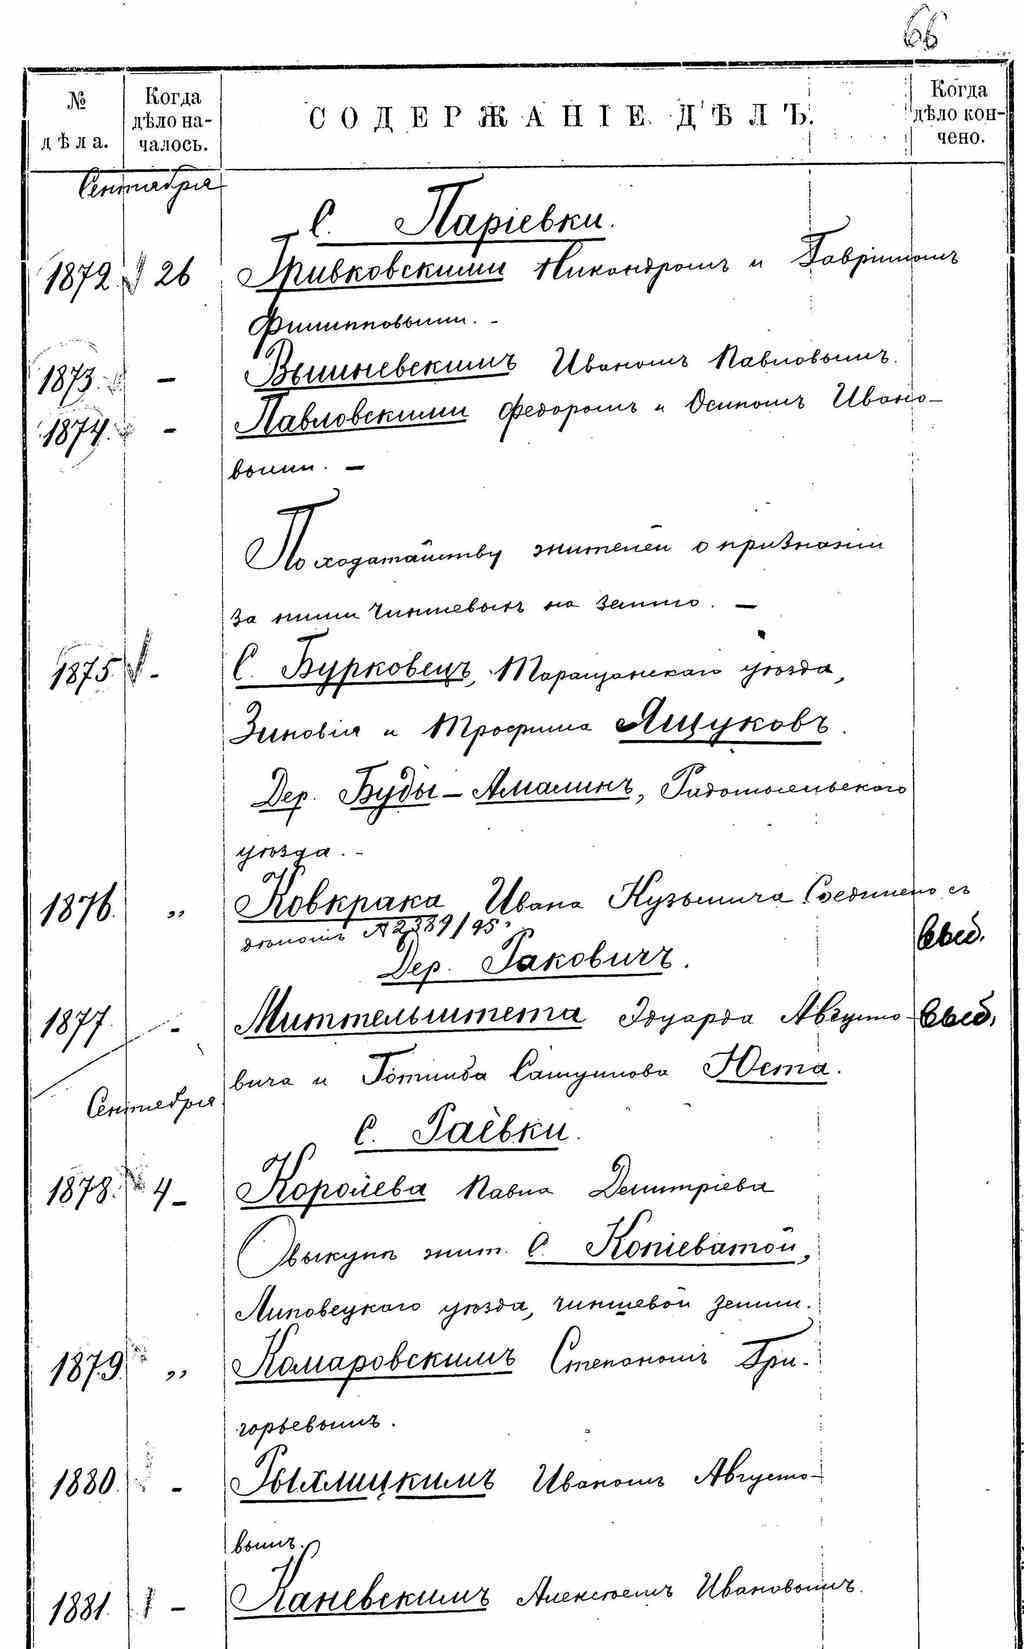 66
№ дѣла.
Когда дѣло началось.
СОДЕРЖАНІЕ ДѢЛЪ.
Когда дѣло кончено.
Сентября
С. Паріевки.
1872 26 Гривковскими Никандромъ и Гавріиломъ
Филипповыми. -
1873 - Вышневскимъ Иваномъ Павловымъ.
1874 - Павловскими Федоромъ и Осипомъ Ивано-
выми. -
По ходатайству жителей о признаніи
за ними чиншевыхъ на землю. -
1875 - С. Бурковецъ, Таращанскаго уѣзда,
Зиновія и Трофима Ящуковъ.
Дер. Буды-Амалинъ, Радомысльского
уѣзда. -
1876. „ Ковкрака Ивана Кузьмича Соединено съ
дѣломъ № 2339/95.
Дер. Раковичъ. выб.
1877 - Миттельштета Эдуарда Августо- выб.
вича и Готлиба Самуилова Юста.
Сентября
С. Раёвки.
1878. 4 - Королева Павла Дмитріева
О выкупѣ жит. С. Копіеватой,
Липовецкаго уѣзда, чиншевой земли.
1879. „ Комаровскимъ Степаномъ Гри-
горьевымъ.
1880. - Рыхлицкимъ Иваномъ Августо-
вымъ.
1881. - Каневскимъ Алексѣемъ Ивановымъ.